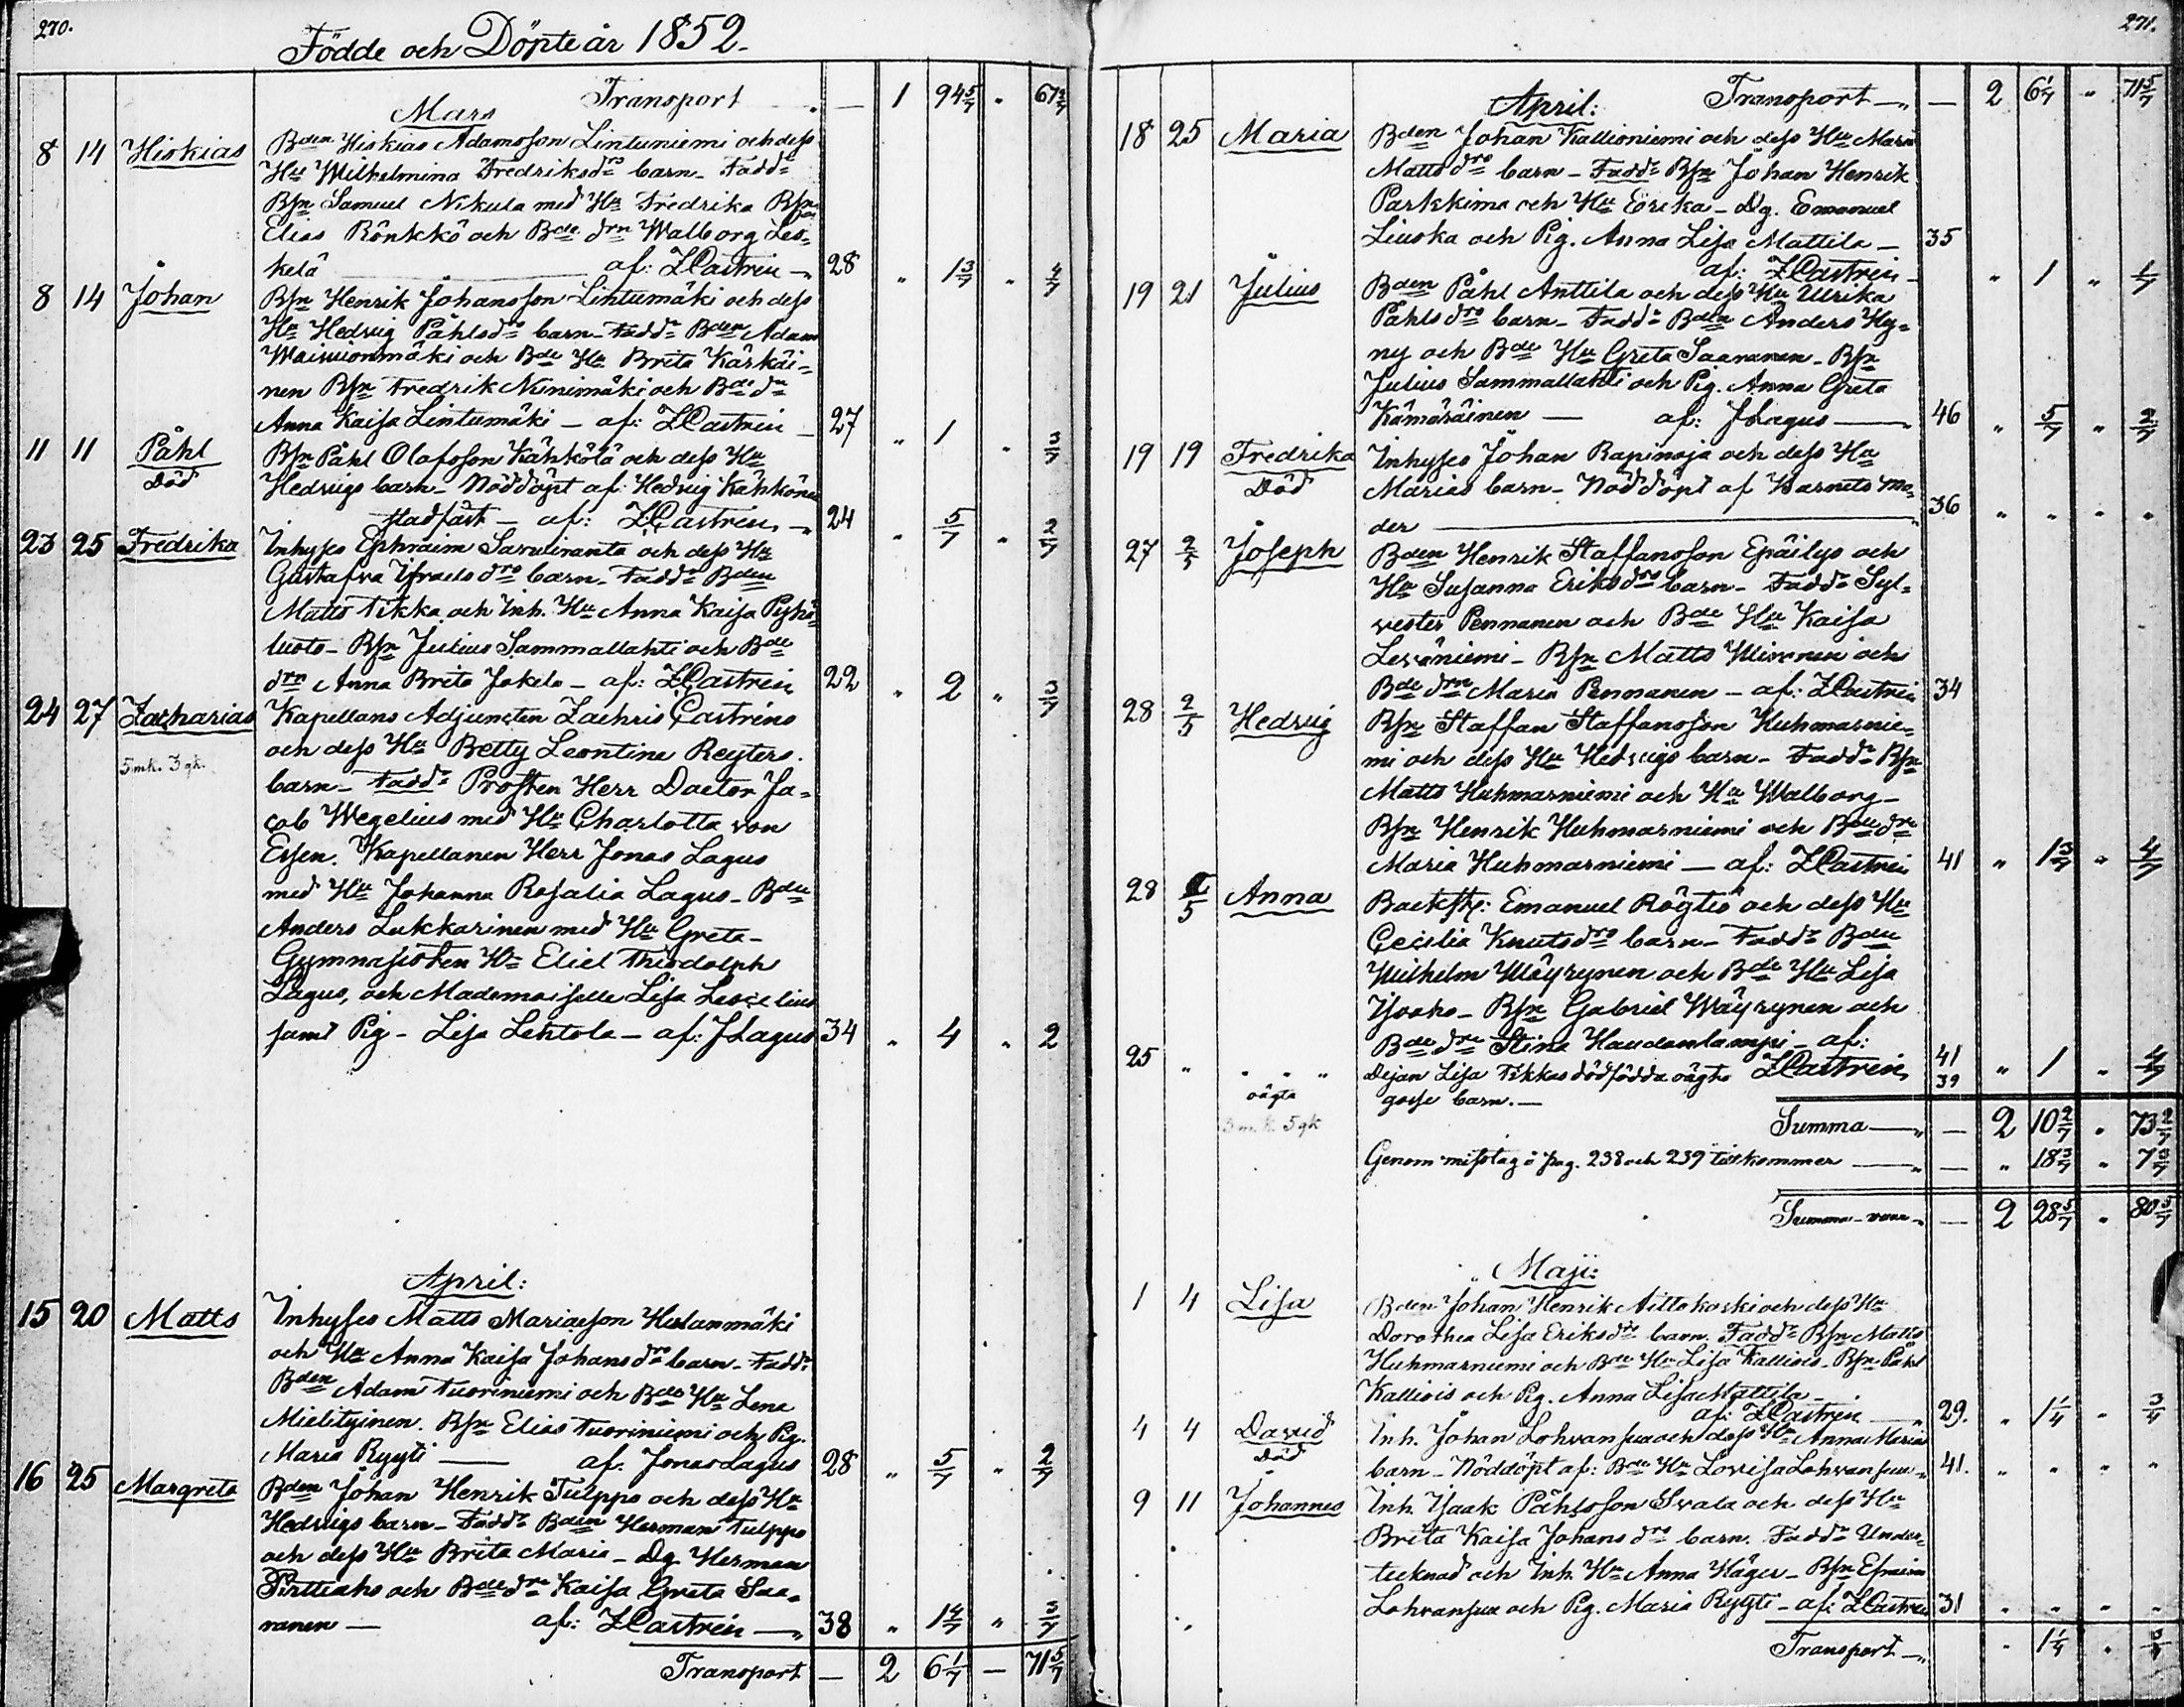 270.
Födde och Döpte år 1852.
Mars Transport — 1 94 5/7 " 67 3/7
8 14 Hiskias Bden Hiskias Adamsson Lintuniemi och dess
Hu Wilhelmina Fredriksdrs barn - Fadd:
Bsn Samuel Nikula med Hu Fredrika Bsn
Elias Rönkkö och Bde drn Walborg Les=
kelä af: ZCastrén 28 " 1 3/7 " 4/7
8 14 Johan Bsn Henrik Johansson Lintumäki och dess
Hu Hedvig Påhlsdrs barn - Fadd: Bden Adam
Wainionmäki och Bde Hu Brita Kärkäi=
nen Bsn Fredrik Niinimäki och Bde dr
Anna Kaisa Lintumäki — af: ZCastrén 27 " 1 " 3/7
11 11 Påhl Bsn Påhl Olofsson Kähkölä och dess Hu
Död Hedvigs barn - Nöddöpt af: Hedvig Kähkönen
stadfäst — af: ZCastrén 24 " 5/7 " 2/7
23 25 Fredrika Inhyses Ephraim Savuiranta och dess Hu
Gustafva Israelsdrs barn - Fadd: Bden
Matts Tikka och Inh. Hu Anna Kaisa Pyhä=
luoto - Bsn Julius Sammallahti och Bde
drn Anna Brita Jokela — af: ZCastrén 22 " 2 " 3/7
24 27 Zacharias Kapellans Adjuncten Zachris Castréns
och dess Hu Betty Leontine Reyters
5 mk. 3 qk. barn - Fadd: Prosten Herr Doctor Ja=
cob Wegelius med Hu Charlotta von
Essen. Kapellanen Herr Jonas Lagus
med Hu Johanna Rosalia Lagus - Bden
Anders Lukkarinen med Hu Greta -
Gymnasisten Hr Eliel Thiodolph
Lagus, och Mademoiselle Lisa Lescelius
samt Pig - Lisa Lehtola — af: JLagus 34 " 4 " 2
April:
15 20 Matts Inhyses Matts Mariaeson Hulanmäki
och Hu Anna Kaisa Johansdrs barn - Fadd:
Bden Adam Tuoriniemi och Bdes Hu Lena
Mielityinen. Bsn Elias Tuoriniemi och Pig.
Maria Ryyti — af. Jonas Lagus 28 " 5/7 " 2/7
16 25 Margreta Bden Johan Henrik Tulppo och dess Hu
Hedvigs barn - Fadd: Bden Herman Tulppo
och dess Hu Brita Maria - Dg. Herman
Pirttiaho och Bde drn Kaisa Greta Saa=
ranen — af: ZCastrén — 38 " 1 4/7 " 3/7
Transport — 2 6 1/7 — 71 5/7
271.
April: Transport — 2 6 1/7 " 71 5/7
18 25 Maria Bden Johan Kallioniemi och dess Hu Maria
Mattsdrs barn - Fadd: Bsn Johan Henrik
Parkkima och Hu Erika - Dg. Emanuel
Liuska och Pig. Anna Lisa Mattila — 35
af: ZCastrén " 1 " 1/7
19 21 Julius Bden Påhl Anttila och dess Hu Ulrika
Påhlsdrs barn - Fadd: Bden Anders Hy=
ny och Bde Hu Greta Saaranen - Bsn
Julius Sammallahti och Pig. Anna Greta
Kämäräinen — af: JLagus — 46 " 5/7 " 2/7
19 19 Fredrika Inhyses Johan Rapinoja och dess Hu
Död Marias barn - Nöddöpt af Barnets mo=
der 36 " " " "
27 2/5 Joseph Bden Henrik Staffansson Epäilys och
Hu Susanna Eriksdrs barn - Fadd: Syl=
vester Pennanen och Bde Hu Kaisa
Leväniemi - Bsn Matts och
Bde drn Maria Pennanen — af: ZCastrén 34
28 2/5 Hedvig Bsn Staffan Staffansson Huhmarnie=
mi och dess Hu Hedvigs barn - Fadd: Bsn
Matts Huhmarniemi och Hu Walborg -
Bsn Henrik Huhmarniemi och Bde drn
Maria Huhmarniemi — af: ZCastrén 41 " 1 3/7 " 4/7
28 /5 Anna Backst: Emanuel Röytiö och dess Hu
Cecilia Knutsdrs barn - Fadd: Bden
Wilhelm Wäyrynen och Bde Hu Lisa
Isoaho - Bsn Gabriel Wäyrynen och
Bde drn Stina Haudanlampi — af:
ZCastrén 41 " 1 " 4/7
25 " " " " Dejan Lisa Tikkas dödfödda oägta 39
oägta gosse barn. —
3 mk. 5 qk
Summa — 2 10 2/7 " 73 2/7
Genom misstag å pag. 238 och 239 tillkommer — " 18 3/7 " 7 3/7
Summa — 2 28 5/7 " 80 5/7
Maji:
1 4 Lisa Bden Johan Henrik Aittokoski och dess Hu
Dorothea Lisa Eriksdrs barn. Fadd: Bsn Matts
Huhmarniemi och Bde Hu Lisa Kalliois - Bsn Påhl
Kalliois och Pig. Anna Lisa Mattila -
af: ZCastrén 29. " 1 1/4 " 3/4
4 4 David Inh. Johan Lohvansuu och dess Hu Anna Marias
Död barn - Nöddöpt af: Bde Hu Lovisa Lohvansuu 41. " " " "
9 11 Johannes Inh. Isaak Påhlsson Svala och dess Hu
Brita Kaisa Johansdrs barn. Fadd: Under=
tecknad och Inh. Hu Anna Häger - Bsn Efraim
Lohvansuu och Pig. Maria Ryyti — af: ZCastrén 31 " " " "
Transport — " 1 1/4 " 3/4